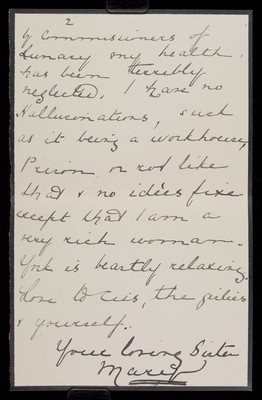 2
of Commissioners of
Lunacy my health
has been terribly
neglected. I have no
Hallucinations, such
as it being a workhouse,
Prison or rot like
that & no idées fixe
except that I am a
very rich woman.
York is beastly relaxing.
Love to Cis, the
& yourself.
Your loving Sister